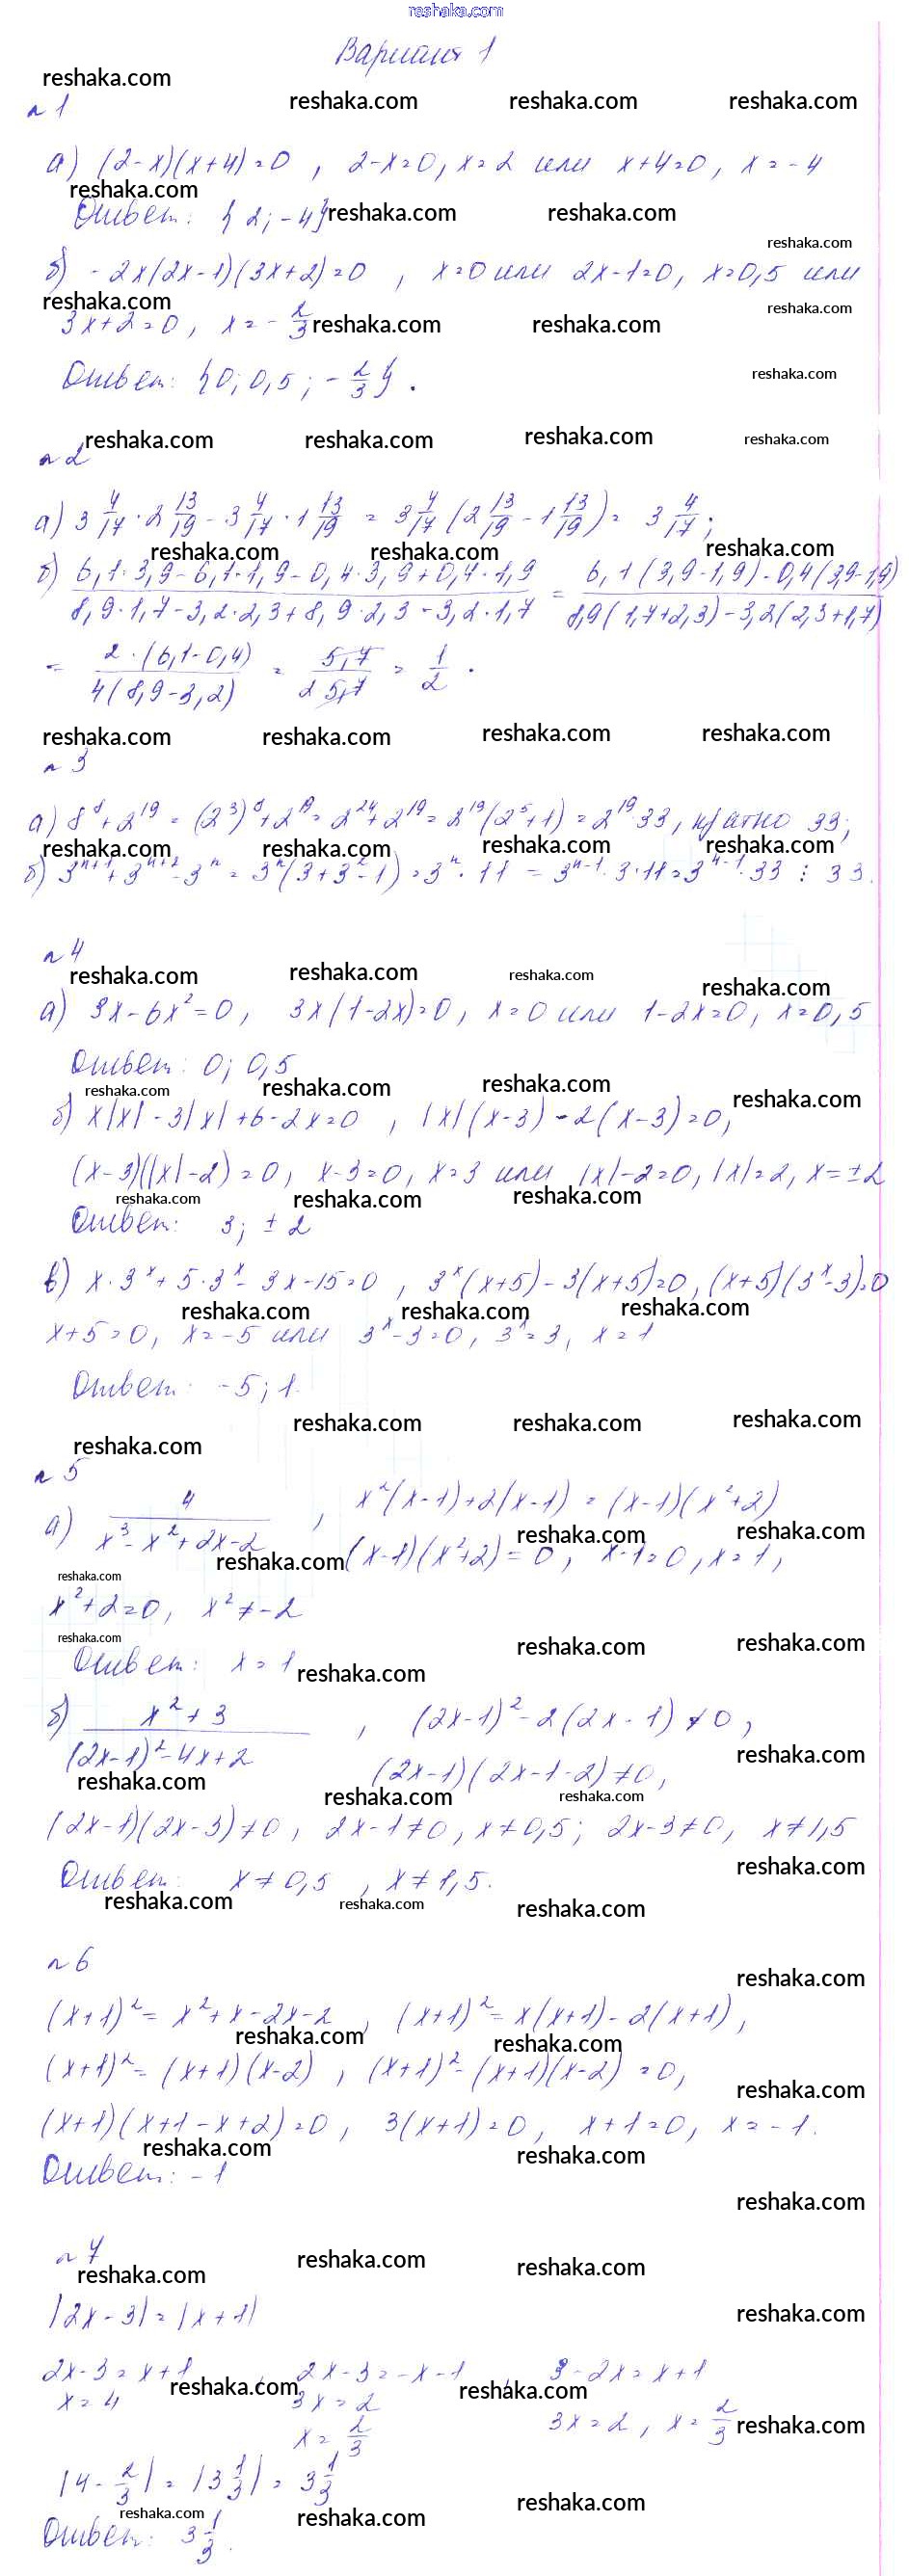 reshaka.com
Вариант 1
reshaka.com
reshaka.com reshaka.com reshaka.com
№ 1
а) (2-x)(x+4)=0 , 2-x=0, x=2 или x+4=0, x=-4
reshaka.com
Ответ: {2; -4} reshaka.com reshaka.com
reshaka.com
б) -2x(2x-1)(3x+2)=0 , x=0 или 2x-1=0, x=0,5 или
reshaka.com reshaka.com
3x+2=0, x=-2/3 reshaka.com reshaka.com
Ответ: {0; 0,5; -2/3}.
reshaka.com
reshaka.com reshaka.com reshaka.com reshaka.com
№ 2
а) 3 4/17 · 2 13/19 - 3 4/17 · 1 13/19 = 3 4/17 (2 13/19 - 1 13/19) = 3 4/17;
reshaka.com reshaka.com reshaka.com
б) (6,1·3,9-6,1·1,9-0,4·3,9+0,4·1,9)/(8,9·1,7-3,2·2,3+8,9·2,3-3,2·1,7) = (6,1(3,9-1,9)-0,4(3,9-1,9))/(8,9(1,7+2,3)-3,2(2,3+1,7))
= (2·(6,1-0,4))/(4(8,9-3,2)) = 5,7/(2 5,7) = 1/2.
reshaka.com reshaka.com reshaka.com reshaka.com
№ 3
а) 8⁸+2¹⁹ = (2³)⁸+2¹⁹ = 2²⁴+2¹⁹ = 2¹⁹(2⁵+1) = 2¹⁹·33, кратно 33;
reshaka.com reshaka.com reshaka.com reshaka.com
б) 3ⁿ⁺¹+3ⁿ⁺²-3ⁿ = 3ⁿ(3+3²-1) = 3ⁿ·11 = 3ⁿ⁻¹·3·11 = 3ⁿ⁻¹·33 ⋮ 33.
№ 4
reshaka.com reshaka.com reshaka.com reshaka.com
а) 3x-6x²=0, 3x(1-2x)=0, x=0 или 1-2x=0, x=0,5
Ответ: 0; 0,5
reshaka.com reshaka.com reshaka.com reshaka.com
б) x|x|-3|x|+6-2x=0 , |x|(x-3)-2(x-3)=0,
(x-3)(|x|-2)=0, x-3=0, x=3 или |x|-2=0, |x|=2, x=±2
reshaka.com reshaka.com reshaka.com
Ответ: 3; ±2
в) x·3ˣ+5·3ˣ-3x-15=0 , 3ˣ(x+5)-3(x+5)=0, (x+5)(3ˣ-3)=0
reshaka.com reshaka.com reshaka.com
x+5=0, x=-5 или 3ˣ-3=0, 3ˣ=3, x=1
Ответ: -5; 1.
reshaka.com reshaka.com reshaka.com
reshaka.com
№ 5
а) 4/(x³-x²+2x-2) , x²(x-1)+2(x-1) = (x-1)(x²+2)
reshaka.com reshaka.com
reshaka.com (x-1)(x²+2)=0, x-1=0, x=1,
reshaka.com
x²+2=0, x²≠-2
reshaka.com reshaka.com reshaka.com
Ответ: x=1 reshaka.com
б) (x²+3)/((2x-1)²-4x+2) , (2x-1)²-2(2x-1)≠0,
reshaka.com
reshaka.com (2x-1)(2x-1-2)≠0,
reshaka.com reshaka.com
(2x-1)(2x-3)≠0, 2x-1≠0, x≠0,5; 2x-3≠0, x≠1,5
reshaka.com
Ответ: x≠0,5 , x≠1,5.
reshaka.com reshaka.com reshaka.com
№ 6
reshaka.com
(x+1)²=x²+x-2x-2 , (x+1)²=x(x+1)-2(x+1),
reshaka.com reshaka.com
(x+1)²=(x+1)(x-2) , (x+1)²-(x+1)(x-2)=0,
reshaka.com
(x+1)(x+1-x+2)=0, 3(x+1)=0, x+1=0, x=-1.
reshaka.com reshaka.com
Ответ: -1
reshaka.com
№ 7
reshaka.com reshaka.com reshaka.com
|2x-3|=|x+1|
reshaka.com
2x-3=x+1 , 2x-3=-x-1 , 3-2x=x+1
reshaka.com reshaka.com
x=4 3x=2 3x=2, x=2/3 reshaka.com
x=2/3
|4-2/3|=|3 1/3|=3 1/3
reshaka.com reshaka.com reshaka.com
Ответ: 3 1/3.